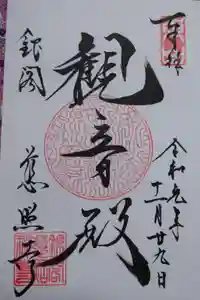 奉拝
令和元年十一月廿九日
観音殿
銀閣
慈照寺